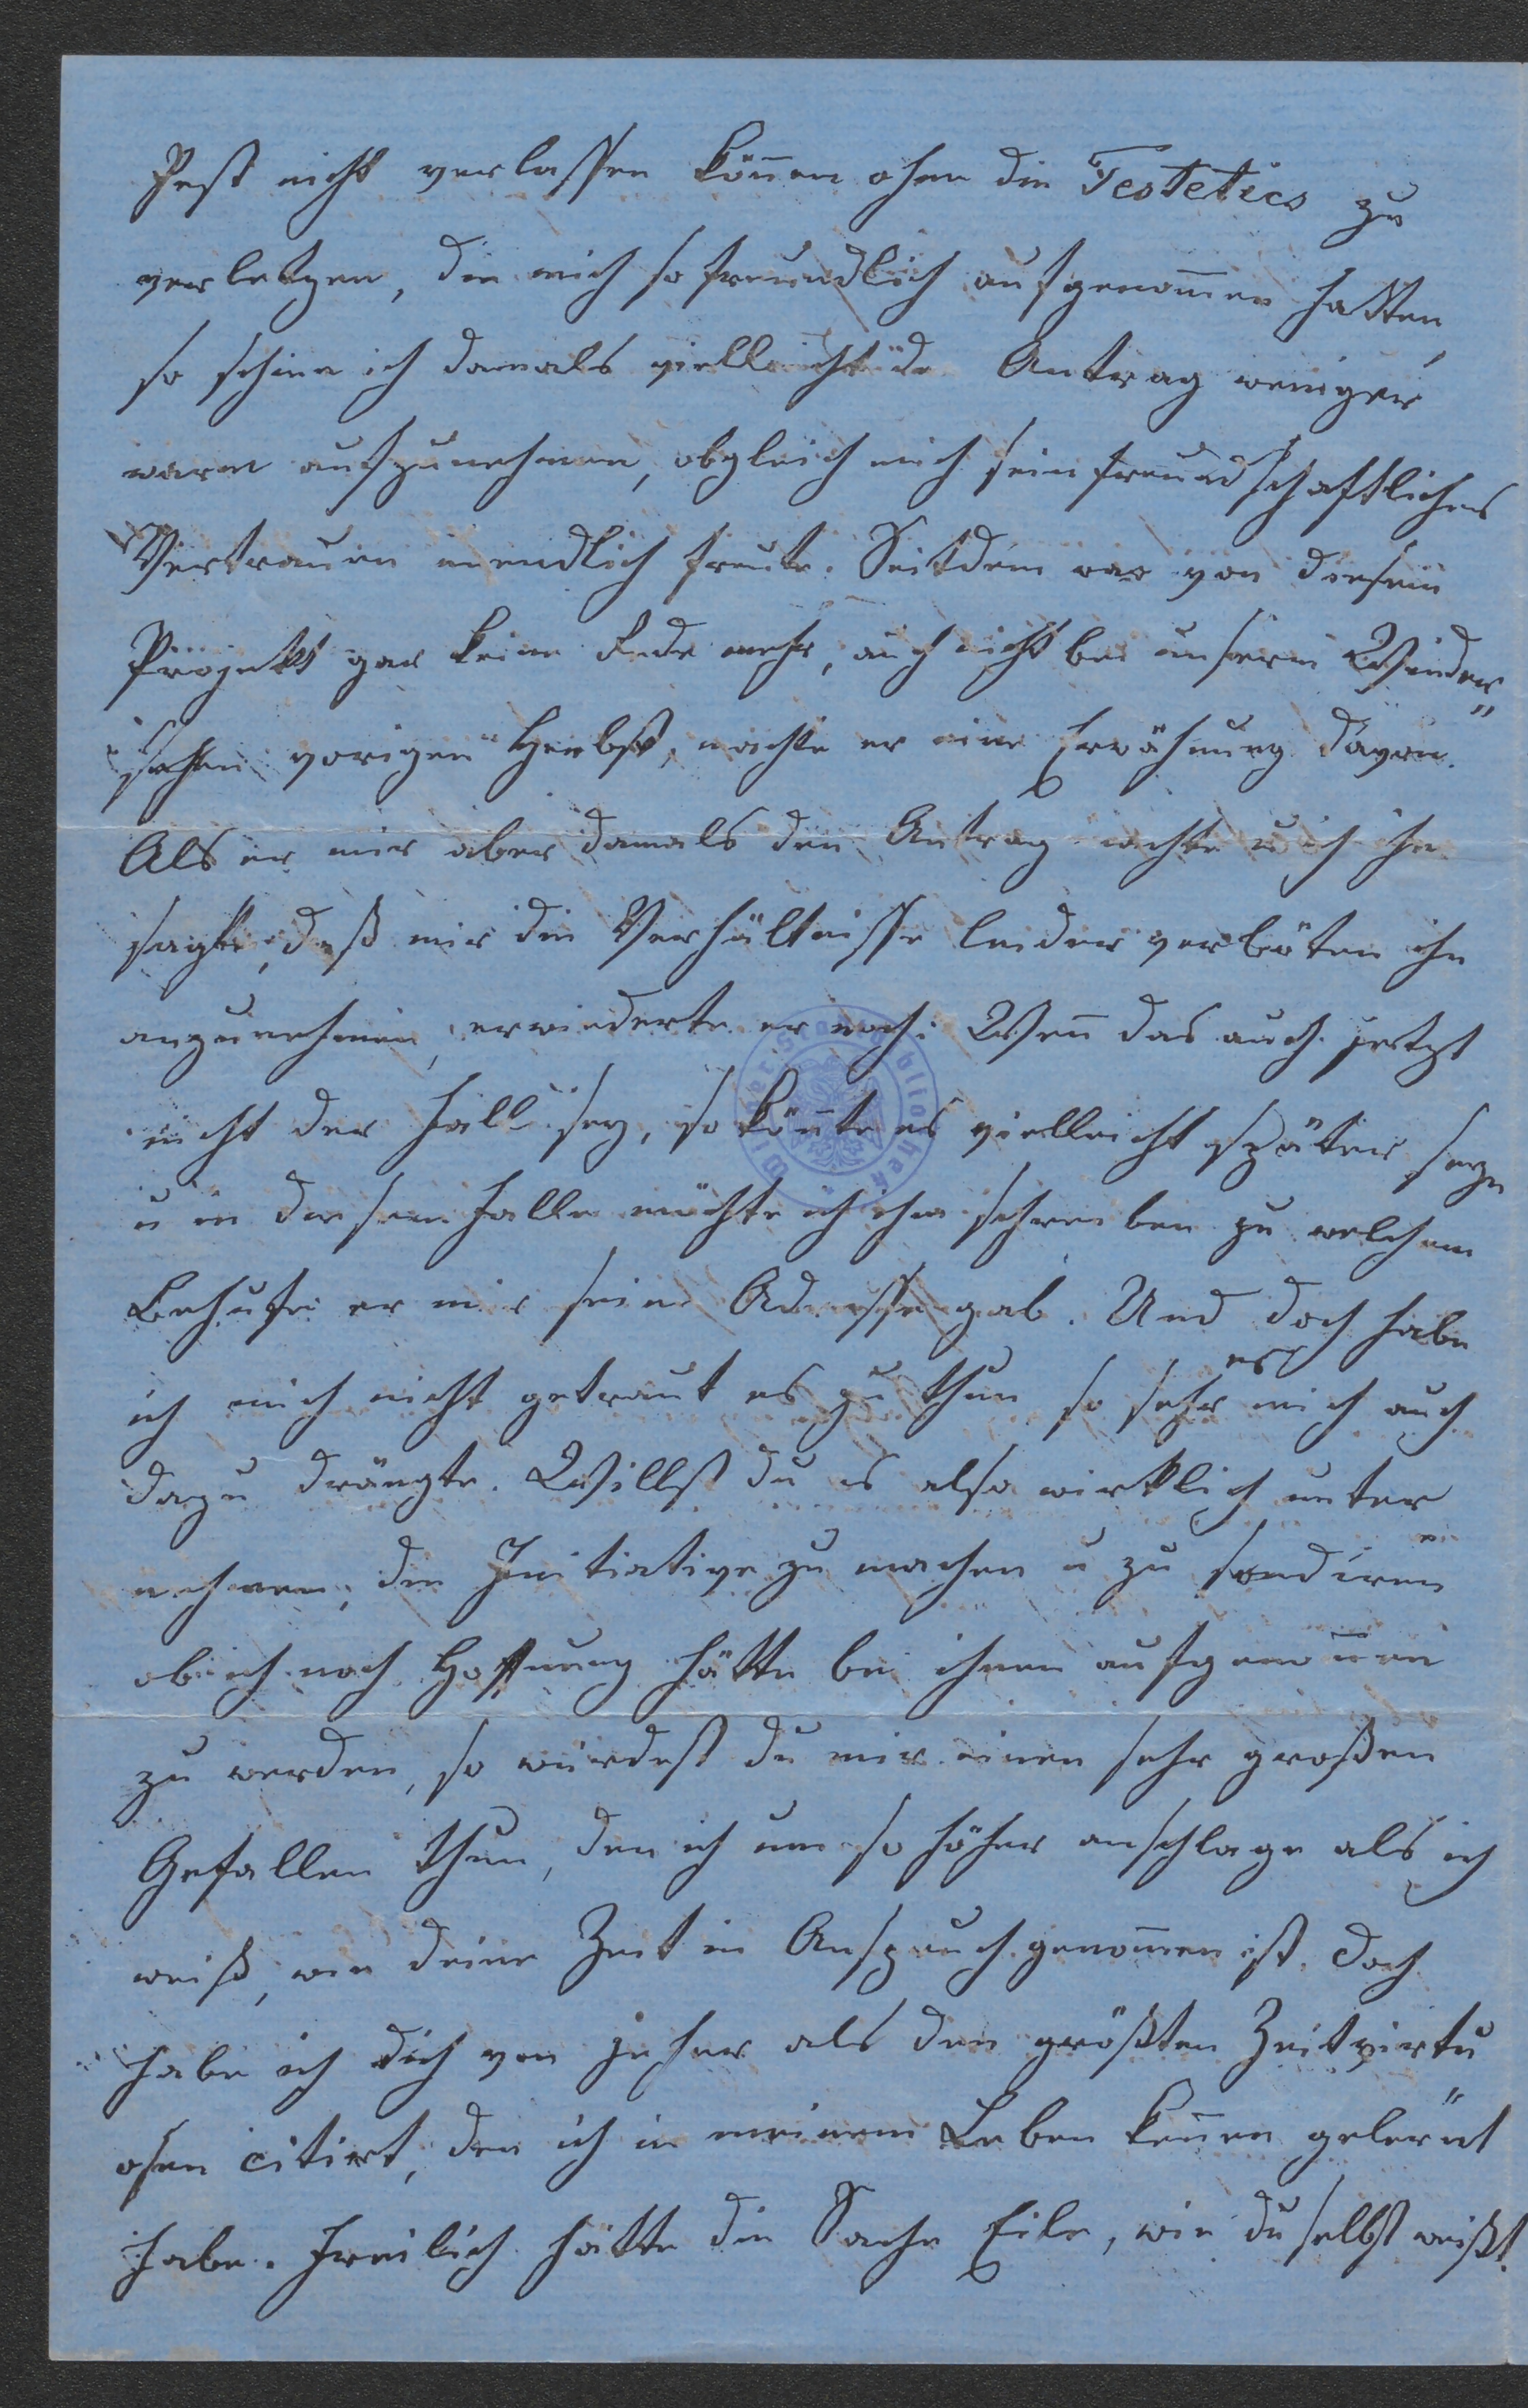 Pest nicht verlassen kön̄en ohne die Testetics zu
verletzen, die mich so freundlich aufgenom̄en hatten,
so schien ich damals vielleicht den Antrag weniger
warm aufzunehmen, obgleich mich sein freundschaftliches
Vertrauen unendlich freute. Seitdem war von diesem
Projekt gar keine Rede mehr, auch nicht bei unserm Wieder„
sehen vorigen Herbst, machte er eine Erwähnung davon.
Als er mir aber damals den Antrag machte u ich ihm
sagte, daß mir die Verhältnisse leider verböten ihn
anzunehmen, erwiederte er noch: Wen̄ das auch jetzt
nicht der Fall sey, so kön̄te es vielleicht später seyn
u in diesem Falle möchte ich ihm schreiben zu welchem
Behufe er mir seine Adresse gab. Und doch habe
ich mich nicht getraut es zu thun so sehr es mich auch
dazu drängte. Willst du es also wirklich unter
nehmen, die Initiative zu machen u zu sondiren
ob ich noch Hoffnung hätte bei ihnen aufgenom̄en
zu werden, so würdest du mir einen sehr großen
Gefallen thun, den ich um so höher anschlage als ich
weiß, wie deine Zeit in Anspruch genom̄en ist. Doch
habe ich dich von jeher als den größten Zeitvirtu
osen citirt, den ich in meinem Leben ken̄en gelernt
habe. Freilich hätte die Sache Eile, wie du selbst weißt.
Wiener Stadtbibliothek